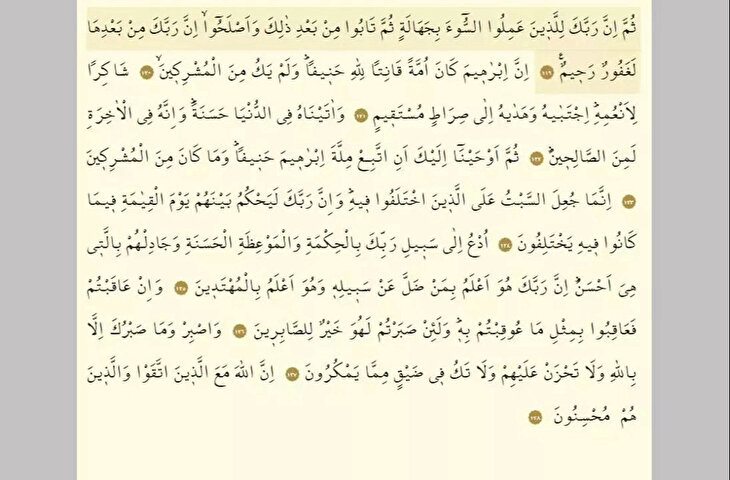 ثُمَّ اِنَّ رَبَّكَ لِلَّذ۪ينَ عَمِلُوا السُّٓوءَ بِجَهَالَةٍ ثُمَّ تَابُوا مِنْ بَعْدِ ذٰلِكَ وَاَصْلَحُٓواۙ اِنَّ رَبَّكَ مِنْ بَعْدِهَا
لَغَفُورٌ رَح۪يمٌ۟ ﴿١١٩﴾ اِنَّ اِبْرٰه۪يمَ كَانَ اُمَّةً قَانِتًا لِلّٰهِ حَن۪يفًاۜ وَلَمْ يَكُ مِنَ الْمُشْرِك۪ينَۙ ﴿١٢٠﴾ شَاكِرًا
لِاَنْعُمِه۪ۜ اِجْتَبٰيهُ وَهَدٰيهُ اِلٰى صِرَاطٍ مُسْتَق۪يمٍ ﴿١٢١﴾ وَاٰتَيْنَاهُ فِي الدُّنْيَا حَسَنَةًۜ وَاِنَّهُ فِي الْاٰخِرَةِ
لَمِنَ الصَّالِح۪ينَۜ ﴿١٢٢﴾ ثُمَّ اَوْحَيْنَٓا اِلَيْكَ اَنِ اتَّبِعْ مِلَّةَ اِبْرٰه۪يمَ حَن۪يفًاۜ وَمَا كَانَ مِنَ الْمُشْرِك۪ينَ
﴿١٢٣﴾ اِنَّمَا جُعِلَ السَّبْتُ عَلَى الَّذ۪ينَ اخْتَلَفُوا ف۪يهِۜ وَاِنَّ رَبَّكَ لَيَحْكُمُ بَيْنَهُمْ يَوْمَ الْقِيٰمَةِ ف۪يمَا
كَانُوا ف۪يهِ يَخْتَلِفُونَ ﴿١٢٤﴾ اُدْعُ اِلٰى سَب۪يلِ رَبِّكَ بِالْحِكْمَةِ وَالْمَوْعِظَةِ الْحَسَنَةِ وَجَادِلْهُمْ بِالَّت۪ي
هِيَ اَحْسَنُۜ اِنَّ رَبَّكَ هُوَ اَعْلَمُ بِمَنْ ضَلَّ عَنْ سَب۪يلِه۪ وَهُوَ اَعْلَمُ بِالْمُهْتَد۪ينَ ﴿١٢٥﴾ وَاِنْ عَاقَبْتُمْ
فَعَاقِبُوا بِمِثْلِ مَا عُوقِبْتُمْ بِه۪ۜ وَلَئِنْ صَبَرْتُمْ لَهُوَ خَيْرٌ لِلصَّابِر۪ينَ ﴿١٢٦﴾ وَاصْبِرْ وَمَا صَبْرُكَ اِلَّا
بِاللّٰهِ وَلَا تَحْزَنْ عَلَيْهِمْ وَلَا تَكُ ف۪ي ضَيْقٍ مِمَّا يَمْكُرُونَ ﴿١٢٧﴾ اِنَّ اللّٰهَ مَعَ الَّذ۪ينَ اتَّقَوْا وَالَّذ۪ينَ
هُمْ مُحْسِنُونَ ﴿١٢٨﴾